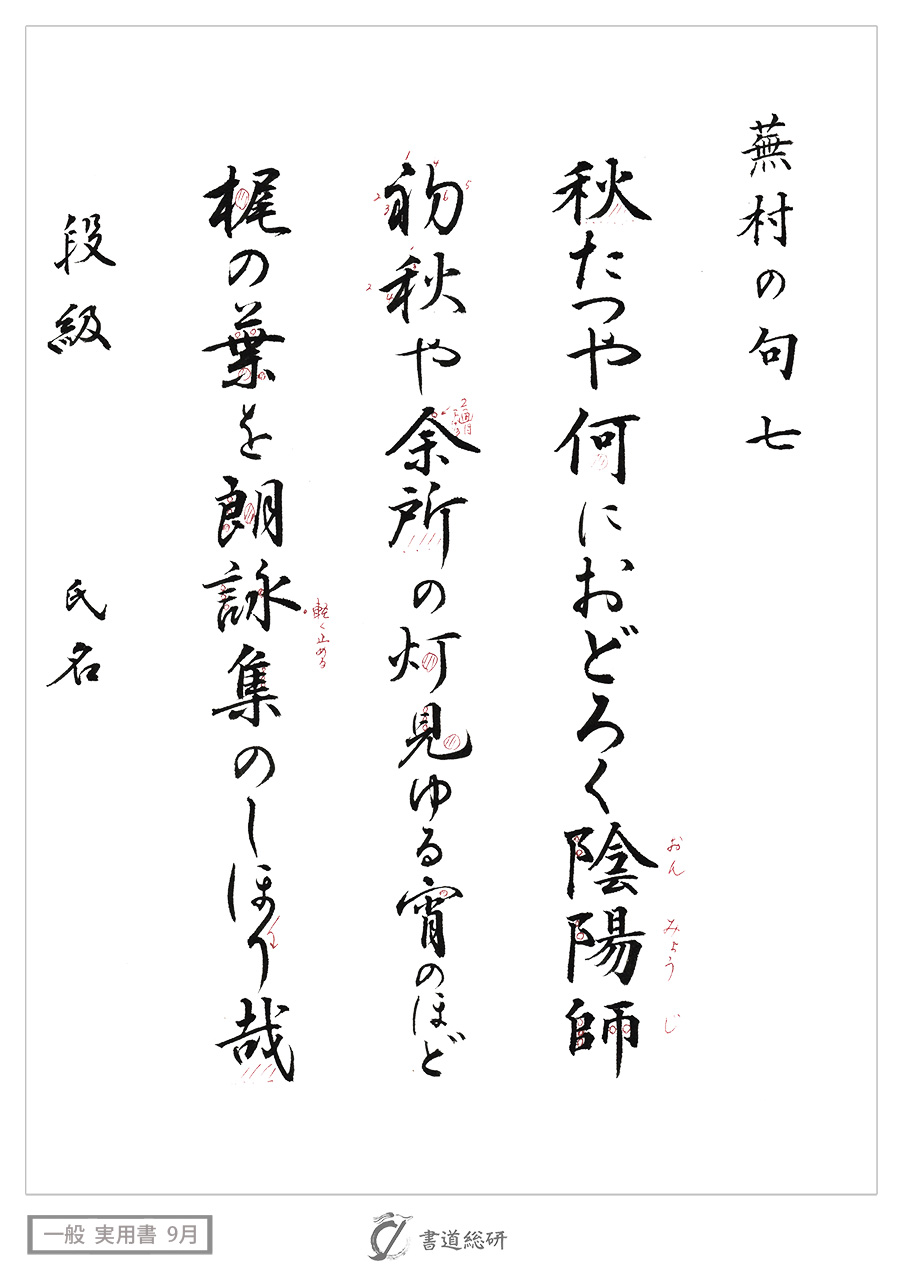 蕪村の句七
秋たつや何におどろく陰陽師
おんみょうじ
初秋や余所の灯見ゆる宵のほど
梶の葉を朗詠集のしほり哉
軽く止める
段級 氏名
一般 実用書 9月
書道総研